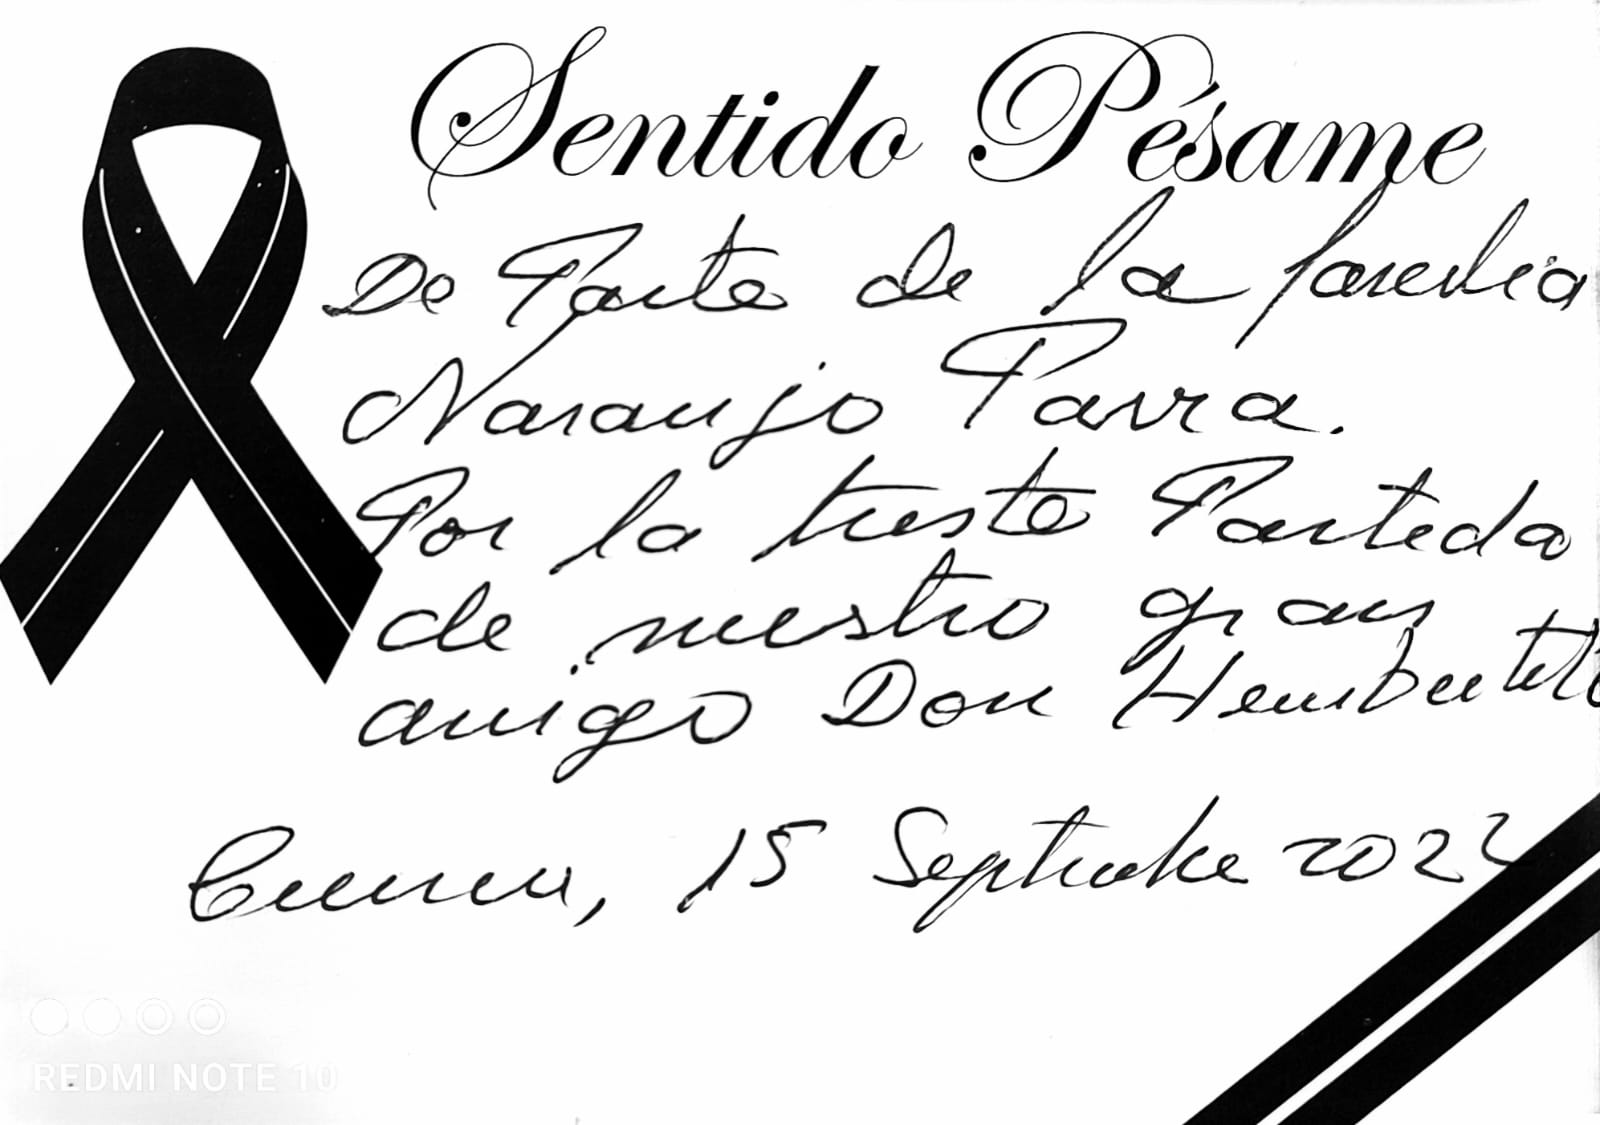 Sentido Pésame
De Parte de la familia
Naranjo Parra.
Por la triste Partida
de nuestro gran
amigo Don Humberto
15 Septiembre 2022
REDMI NOTE 10